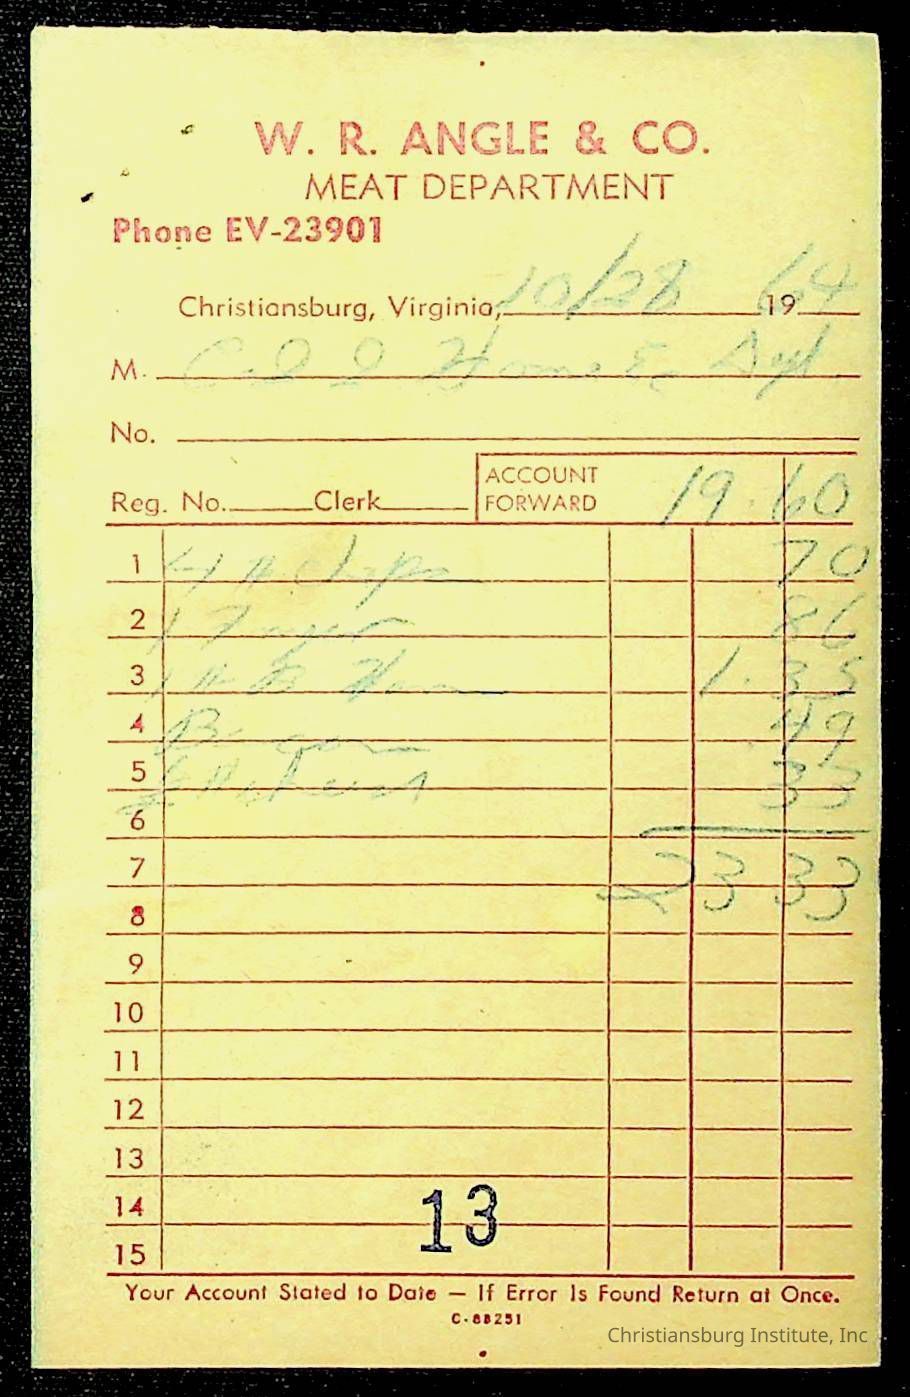 W. R. ANGLE & CO.
MEAT DEPARTMENT
Phone EV-23901
Christiansburg, Virginia, 10/28 1964
M. Home Ec Dept.
No.
Reg. No. Clerk
ACCOUNT FORWARD 19.60
1 4 # Chops 70
2 86
3 1 # B Ham 1.35
4 49
5 33
6
7 23 33
8
9
10
11
12
13
14
13
15
Your Account Stated to Date — If Error Is Found Return at Once.
C-88251
Christiansburg Institute, Inc